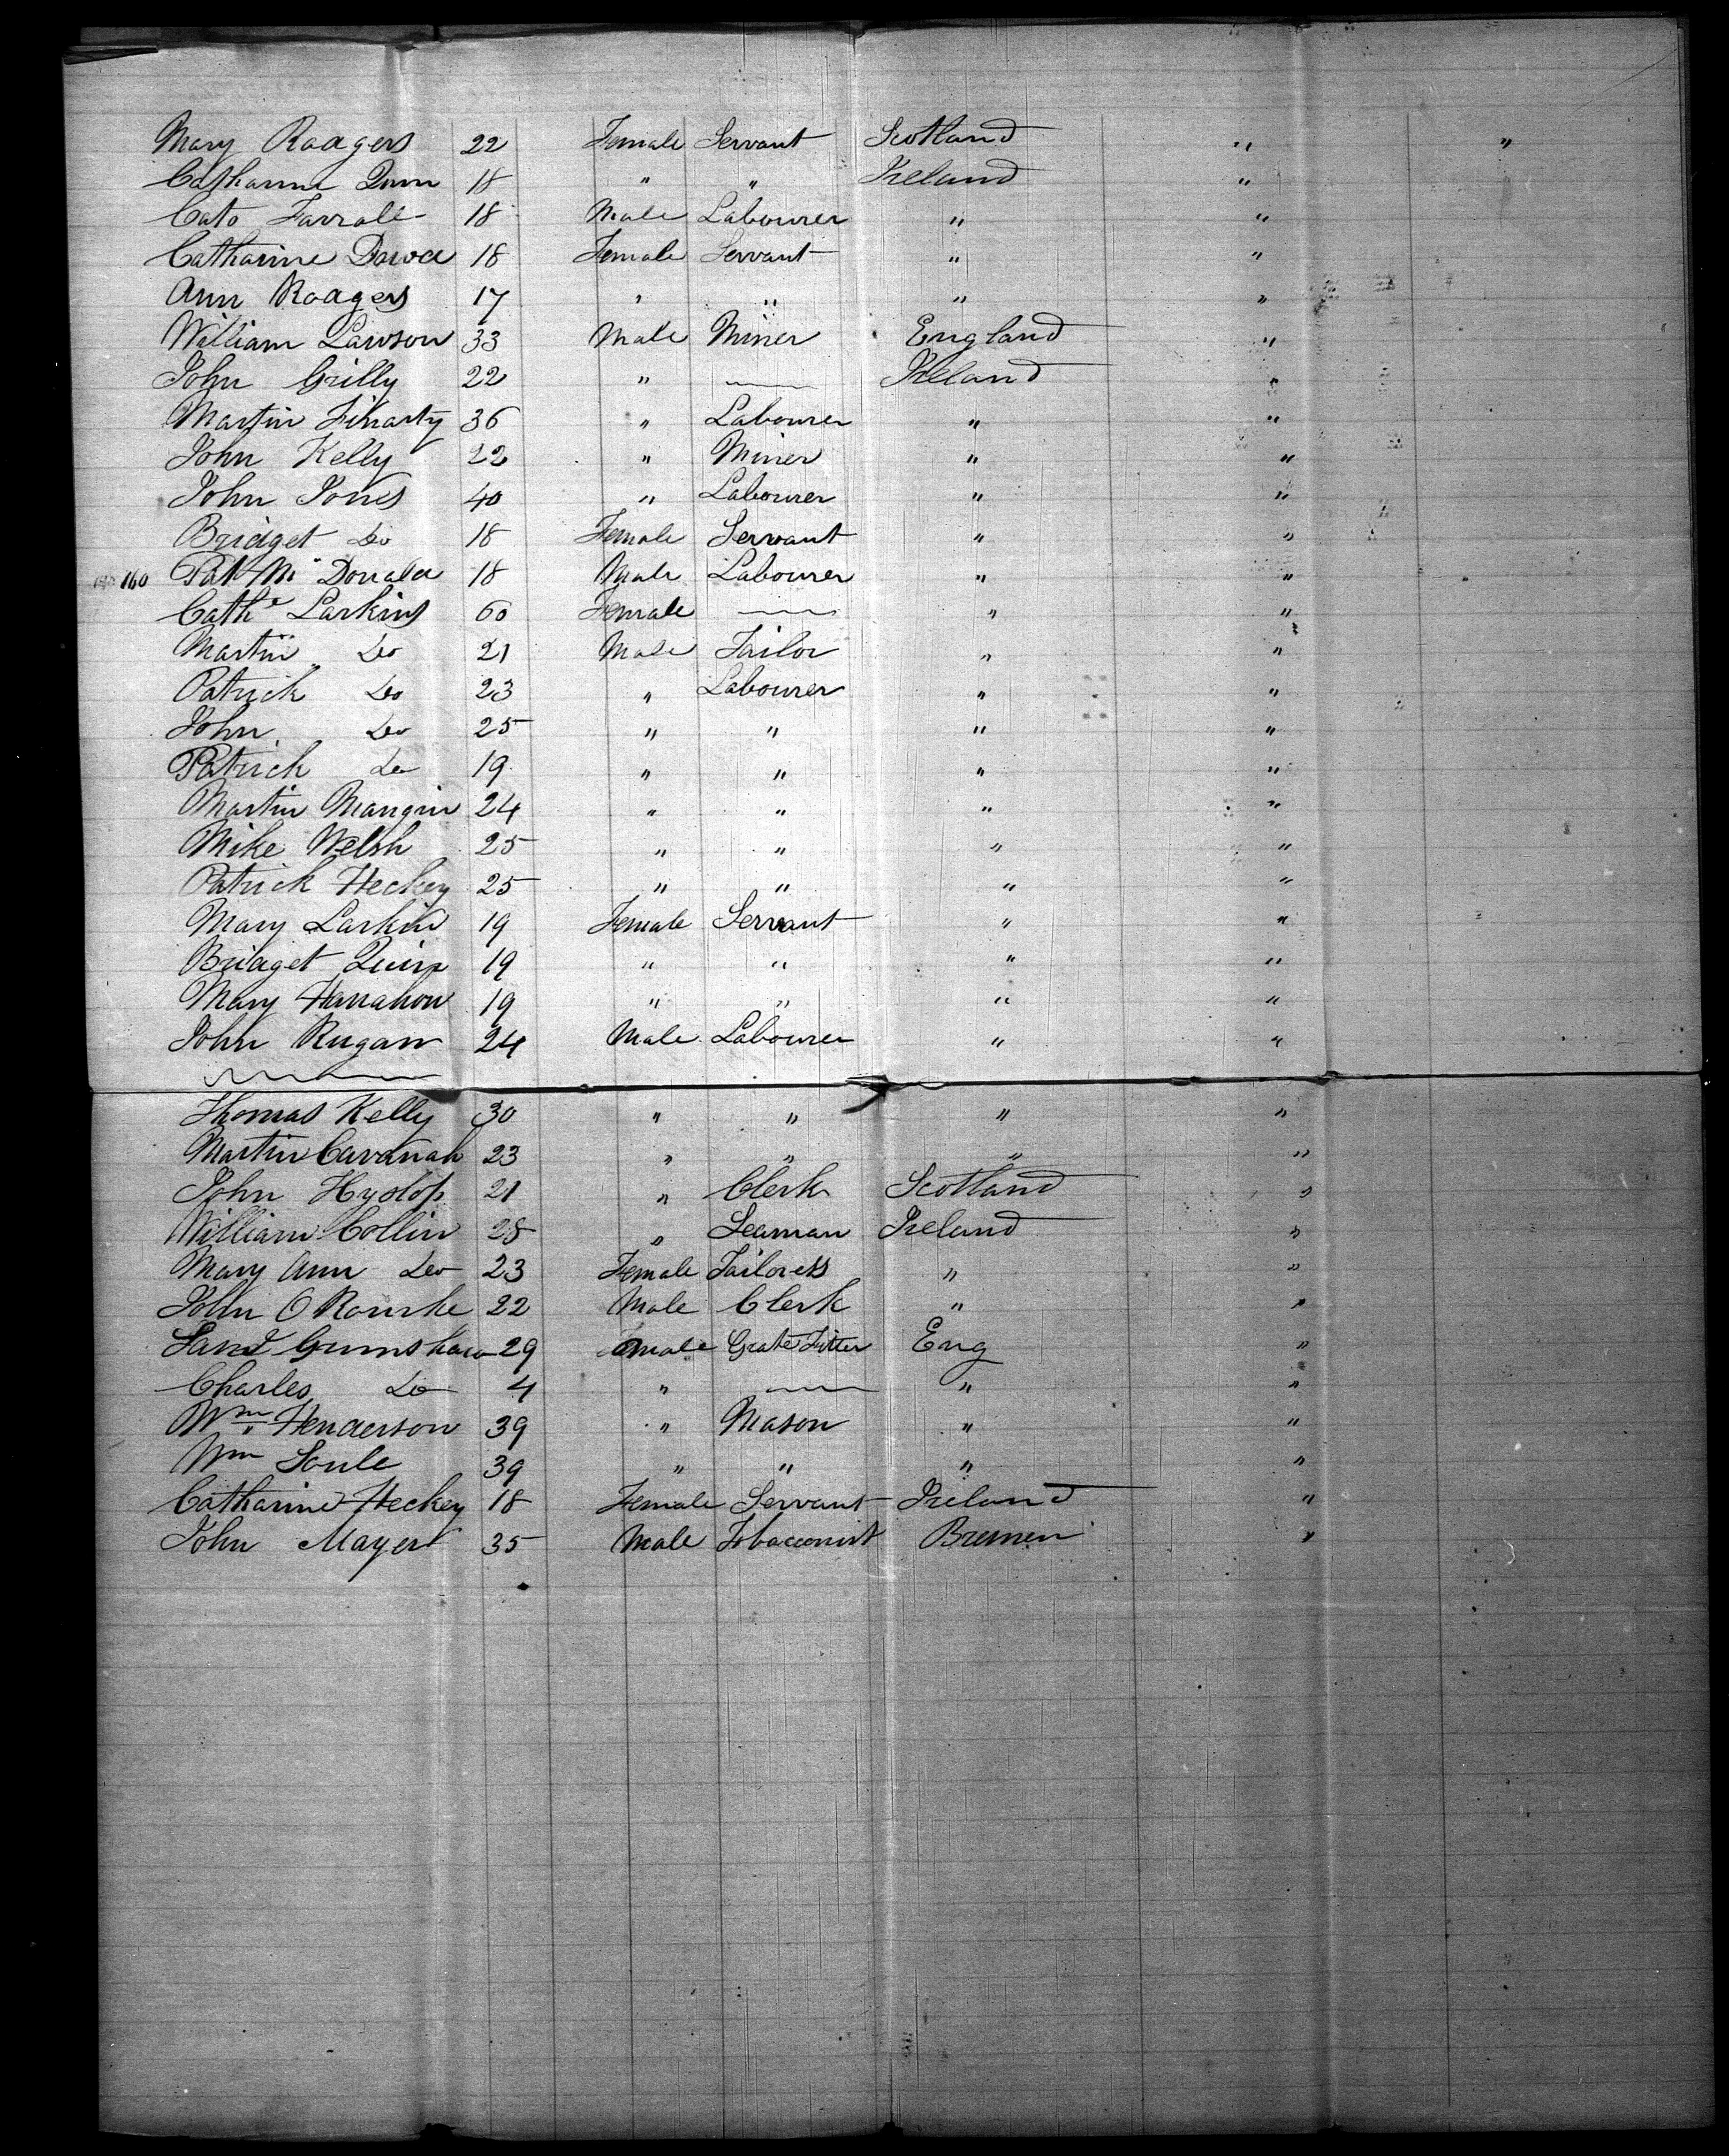 Mary Rodgers 22 Female Servant Scotland " "
Catharine Dunn 18 " " Ireland "
Cato Farrall 18 Male Labourer " "
Catharine Dowd 18 Female Servant " "
Ann Rodgers 17 " " " "
William Lawson 33 Male Miner England "
John Grilly 22 " — Ireland "
Martin Finarty 36 " Labourer " "
John Kelly 22 " Miner " "
John Jones 40 " Labourer " "
Bridget Do 18 Female Servant " "
160 Pat Mc Donald 18 Male Labourer " "
Cathe Larkins 60 Female — " "
Martin Do 21 Male Tailor " "
Patrick Do 23 " Labourer " "
John Do 25 " " " "
Patrick Do 19 " " " "
Martin Mangin 24 " " " "
Mike Welsh 25 " " " "
Patrick Heckey 25 " " " "
Mary Larkin 19 Female Servant " "
Bridget Quinn 19 " " " "
Mary Hanahon 19 " " " "
John Rugan 24 Male Labourer " "
Thomas Kelly 30 " " " "
Martin Cavanah 23 " " " "
John Hyslop 21 " Clerk Scotland "
William Collin 28 " Seaman Ireland "
Mary Ann Do 23 Female Tailoress " "
John O Rourke 22 Male Clerk " "
Saml Grimshaw 29 Male Grate Fitter Eng "
Charles Do 4 " — " "
Wm Henderson 39 " Mason " "
Wm Soule 39 " " " "
Catharine Heckey 18 Female Servant Ireland "
John Mayer 35 Male Tobacconist Bremen "